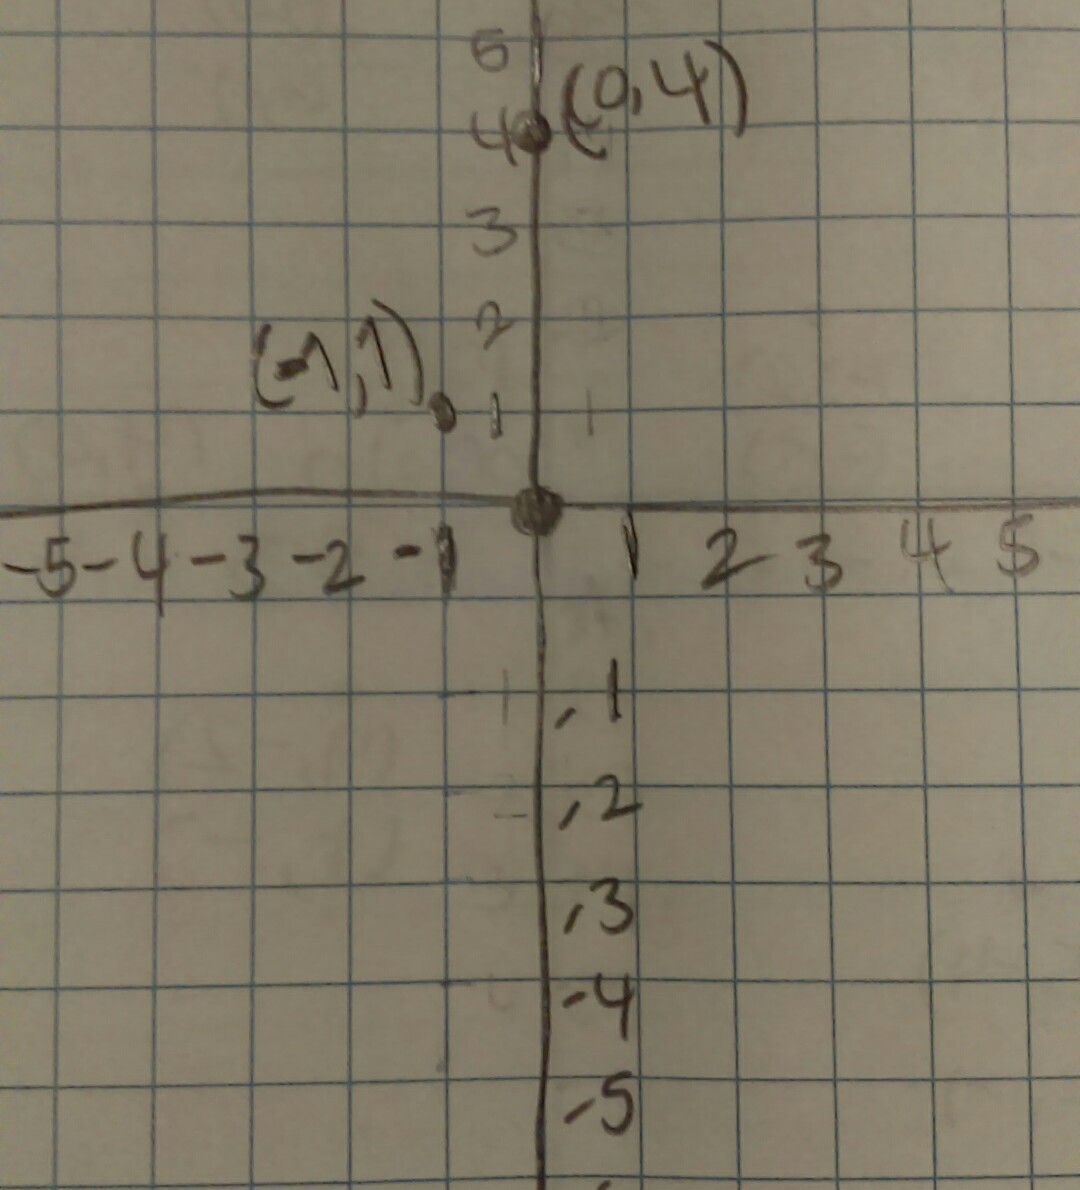 5
4 (0,4)
3
2
(-1,1) 1 1
-5 -4 -3 -2 -1 1 2 3 4 5
-1
-2
-3
-4
-5